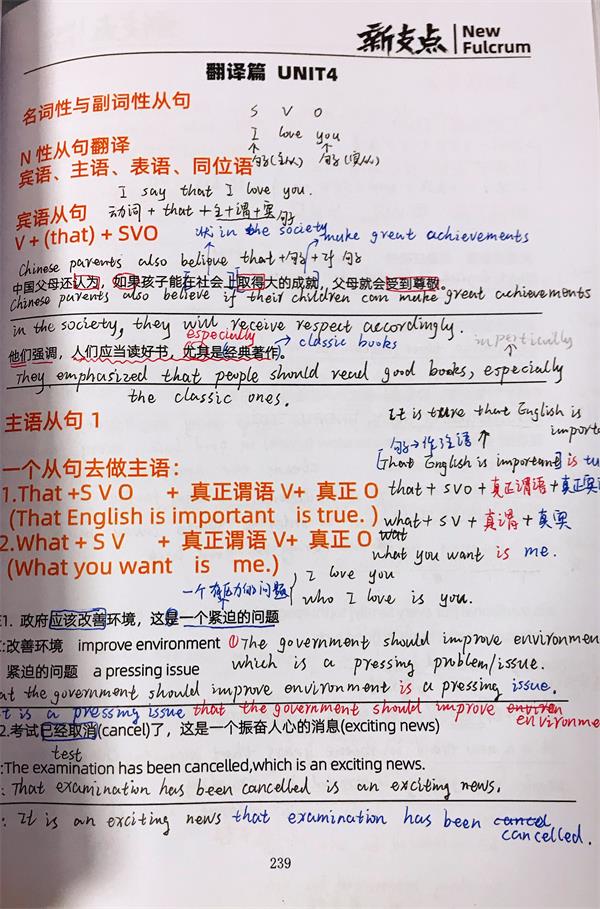 新支点 New Fulcrum
翻译篇 UNIT4
名词性与副词性从句
S V O
I love you
N 性从句翻译
宾语、主语、表语、同位语
I say that I love you.
宾语从句 动词 + that + 主+谓+宾
V + (that) + SVO
状 in the society make great achievements
Chinese parents also believe that + 句 + 时 句
中国父母还认为，如果孩子能在社会上取得大的成就，父母就会受到尊敬。
Chinese parents also believe if their children can make great achievements
in the society, they will receive respect accordingly.
especially classic books
他们强调，人们应当读好书，尤其是经典著作。
They emphasized that people should read good books, especially
the classic ones.
主语从句 1
It is ture that English is
importa
句→作主语
一个从句去做主语：
[that English is important] is tu
1.That +S V O + 真正谓语 V+ 真正 O
that + SVO + 真正谓语 + 真正宾
(That English is important is true. )
what + S V + 真谓 + 真宾
2.What + S V + 真正谓语 V+ 真正 O
what you want is me.
(What you want is me.)
I love you
who I love is you.
1. 政府应该改善环境，这是一个紧迫的问题
:改善环境 improve environment ①The government should improve environmen
紧迫的问题 a pressing issue which is a pressing problem/issue.
at the government should improve environment is a pressing issue.
t is a pressing issue that the government should improve environ
environme
2.考试已经取消(cancel)了，这是一个振奋人心的消息(exciting news)
test
:The examination has been cancelled,which is an exciting news.
: That examination has been cancelled is an exciting news.
: It is an exciting news that examination has been cancel
cancelled.
239